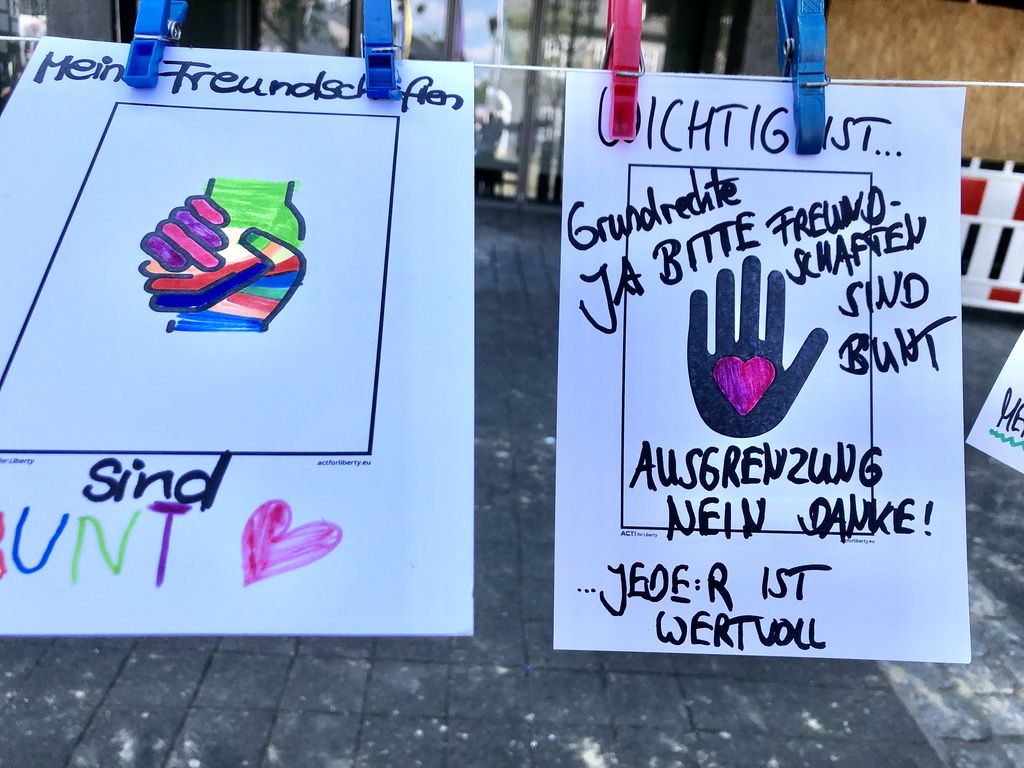 Mein Freundschaften
for Liberty
actforliberty.eu
sind
BUNT
WICHTIG IST...
Grundrechte
JA BITTE
FREUND-
SCHAFTEN
SIND
BUNT
AUSGRENZUNG
NEIN DANKE!
ACT! for Liberty
forliberty.eu
...JEDE:R IST
WERTVOLL